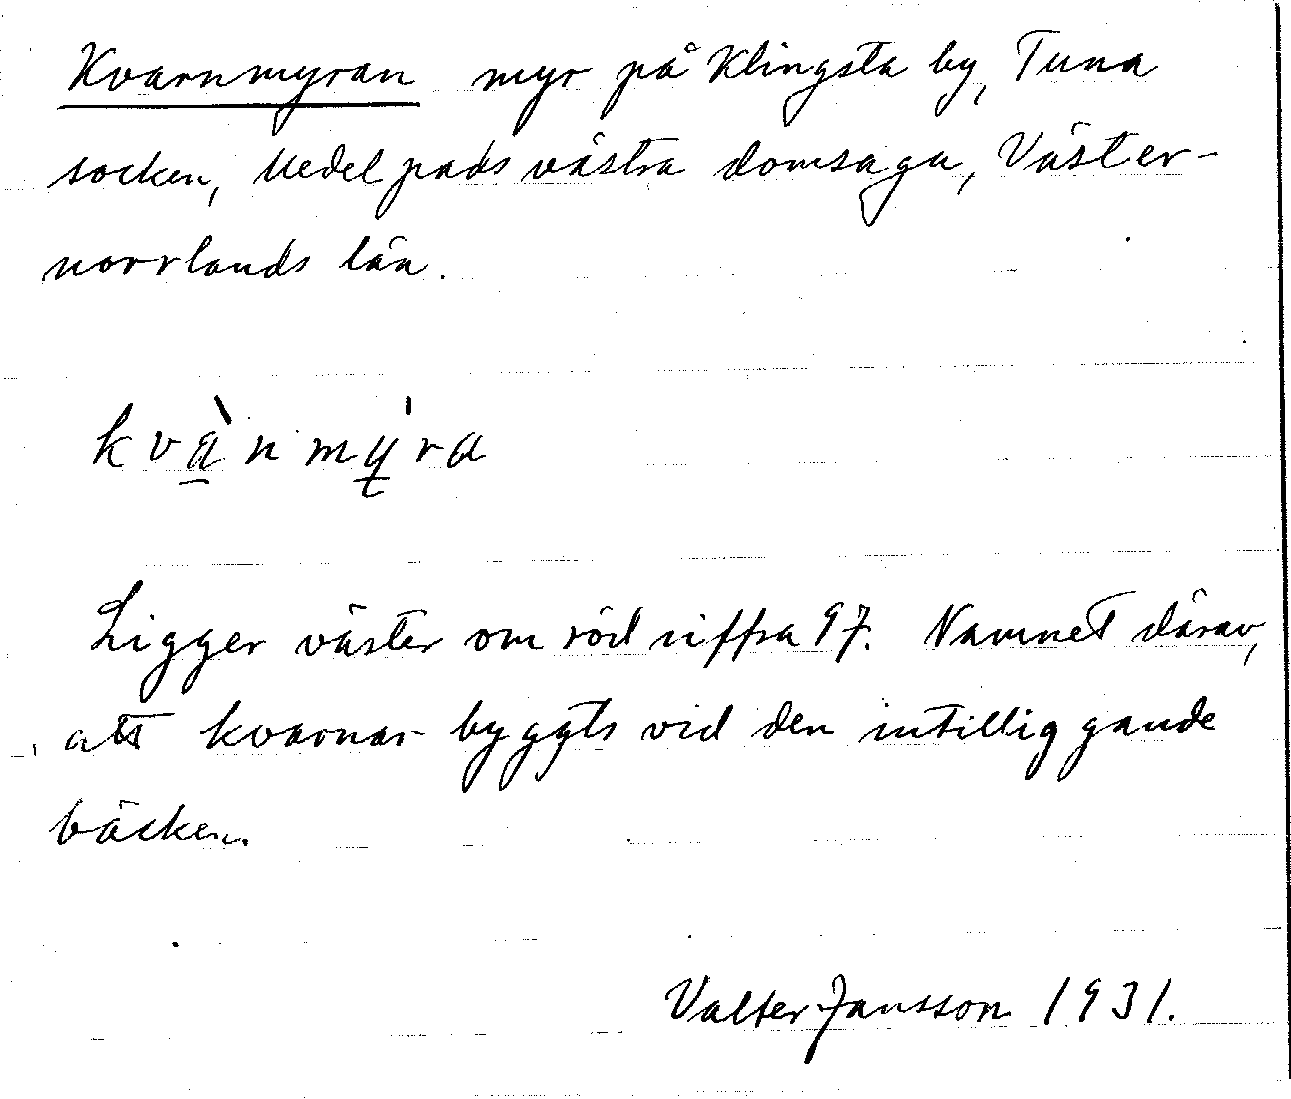 Kvarnmyran myr på Klingsta by, Tuna
socken, Medelpads västra domsaga, Väster-
norrlands län.
kvà̱nmý̱ra
Ligger väster om röd siffra 97. Namnet därav,
att kvarnar byggts vid den intilliggande
bäcken.
Valter Jansson 1931.